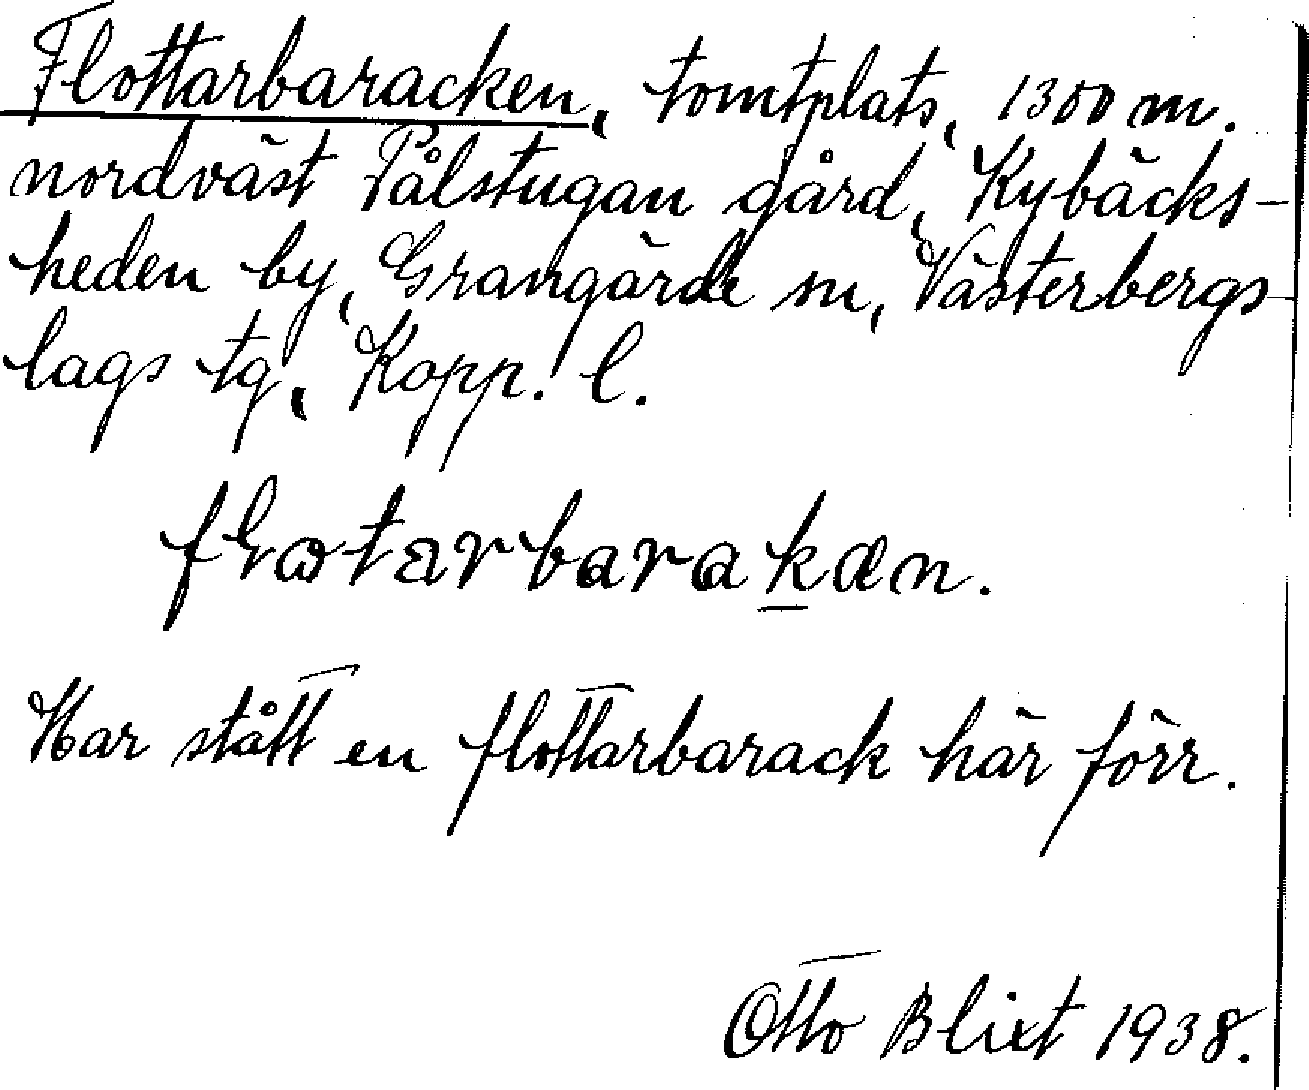 Flottarbaracken, tomtplats, 1300 m.
nordväst Pålstugan gård, Kybäcks-
heden by, Grangärde sn, Västerbergs-
lags tg, Kopp. l.
flωtarbarakæn.
Har stått en flottarbarack här förr.
Otto Blixt 1938.